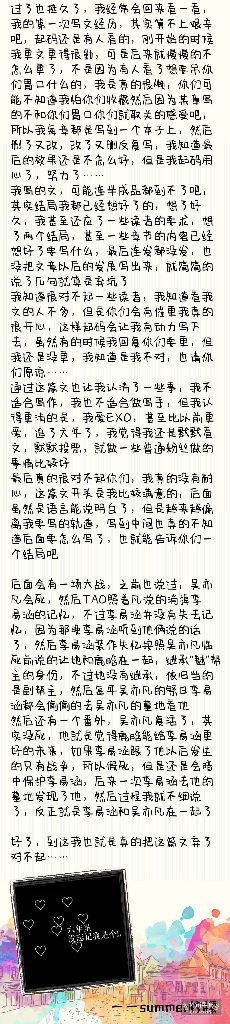 过了也挺久了，我经常会回来看一看，
我的第一次写文经历，其实算不上艰辛
吧，起码还是有人看的，刚开始的时候
我更文更得很勤，可是后来就慢慢的不
怎么更了，不是因为有人看了想要吊你
们胃口什么的，我是真的很懒，你们可
能不知道我怕你们收藏然后因为我真写
的不和你们胃口你们就取关的感受吧，
所以我每章都是写到一个本子上，然后
想了又改，改了又删反复写，我知道最
后的效果还是不怎么好，但是我起码用
心了，努力了……
我写的文，可能连半成品都到不了吧，
其实结局我都已经想好了的，想了好
久，我甚至还应了一些读者的要求，想
了两个结局，甚至一些章节的内容已经
想好了要写什么，最后连发都没发，也
没把文章以后的发展写出来，就简简的
说了几句就算是弃坑了
我知道很对不起一些读者，我知道看我
文的人不多，但是你们会有催更我真的
很开心，这样起码会让我有动力写下
去，虽然有的时候我回复你们要更，但
我还是没更，我知道是我不对，也请你
们原谅……
通过这篇文也让我认清了一些事，我不
适合写作，我也不适合做写手，但我认
得更清的是，我爱EXO，甚至比以前更
爱，追了六年了，我觉得我还是默默看
文，默默投票，就做一些普通粉丝做的
事情比较好
最后真的很对不起你们，我真的没有耐
心，这篇文开头是我比较满意的，后面
虽然是语言能说明白了，但是越来越偏
离我要写的轨道，写到中间也真的不知
道后面要怎么写了，也就能告诉你们一
个结局吧
后面会有一场大战，之前也说过，吴亦
凡会死，然后TAO照着凡说的消掉李
易涵的记忆，不过李易涵并没有失去记
忆，因为那晚李易涵听到他俩说的话
了，然后李易涵装作失忆按照吴亦凡临
死前说的让她和鹿晗在一起，继承“魅”帮
主的身份，不过她没有继承，依旧当的
是副帮主，然后每年吴亦凡的祭日李易
涵都会偷偷的去吴亦凡的墓地看他
然后还有一个番外，吴亦凡复活了，其
实没死，他就是觉得鹿晗能给李易涵更
好的未来，如果李易涵跟了他以后发生
的只有战争，所以假死，但是还是会暗
中保护李易涵，后来一次李易涵去他的
墓地发现了他，然后过程我就不细说
了，反正就是李易涵和吴亦凡在一起了
好了，到这我也就是真的把这篇文弃了
对不起……
summer